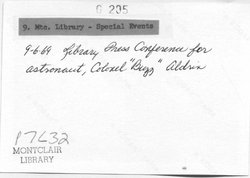 G 205
9. Mtc. Library - Special Events
9-6-69 Library Press Conference for
astronaut, Colonel "Buzz" Aldrin
P7632
MONTCLAIR
LIBRARY